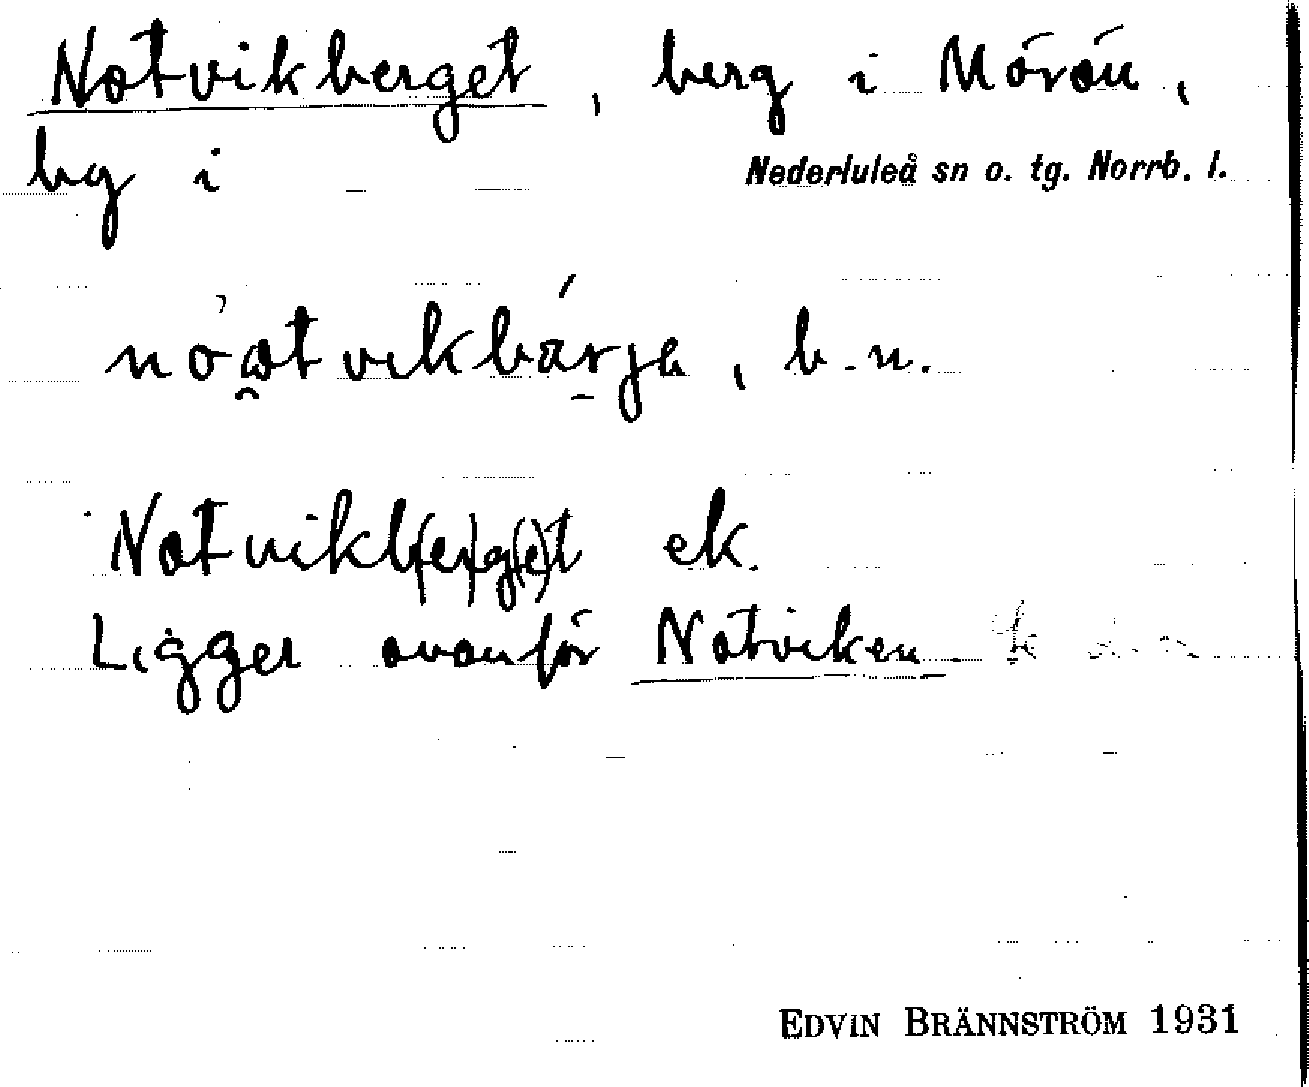 Notvikberget, berg i Mörön,
by i Nederluleå sn o. tg. Norrb. l.
nóatvikbärja, b.n.
Notvikb(er)g(e)t ek.
Ligger ovanför Notviken
EDVIN BRÄNNSTRÖM 1931